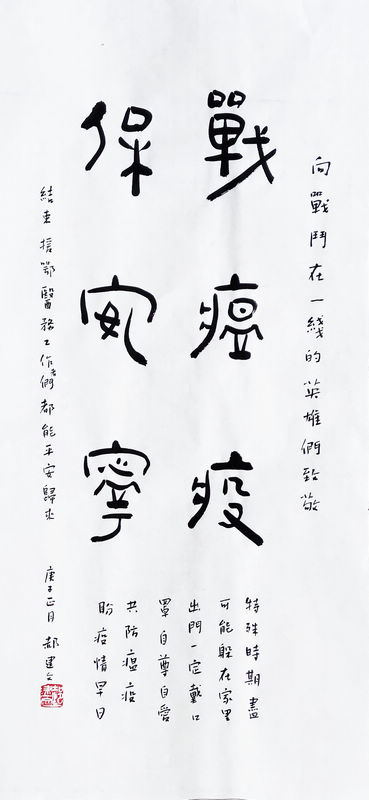 向戰鬥在一綫的英雄們致敬
戰瘟疫
保安寧
特殊時期盡
可能躲在家里
出門一定戴口
罩自尊自愛
共防瘟疫
盼疫情早日
結束援鄂醫務工作者們都能平安歸來
庚子正月 郝建文